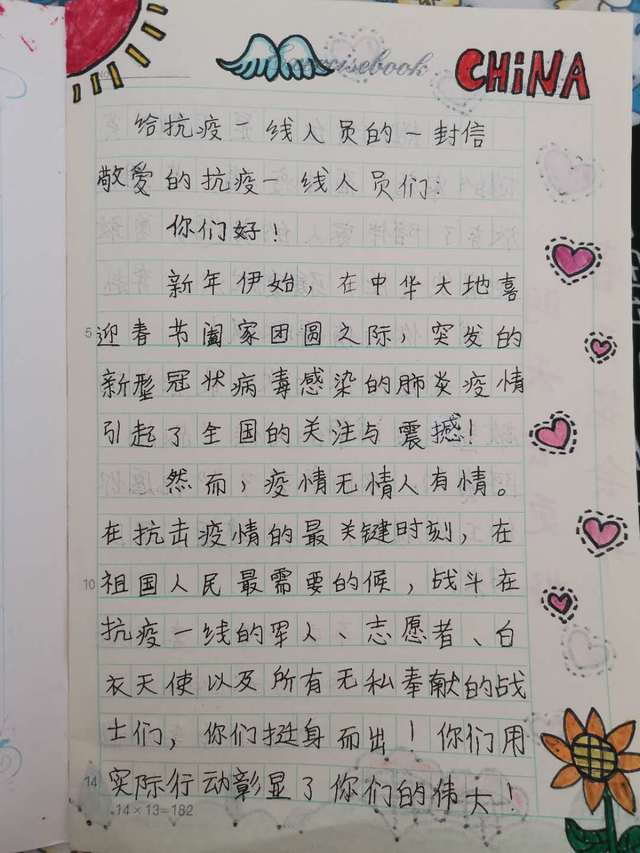 Exercisebook
CHiNA
给抗疫一线人员的一封信
敬爱的抗疫一线人员们:
你们好!
新年伊始,在中华大地喜
5
迎春节阖家团圆之际,突发的
新型冠状病毒感染的肺炎疫情
引起了全国的关注与震撼!
然而,疫情无情人有情。
在抗击疫情的最关键时刻,在
10
祖国人民最需要的候,战斗在
抗疫一线的军人、志愿者、白
衣天使以及所有无私奉献的战
士们,你们挺身而出!你们用
14
实际行动彰显了你们的伟大!
14×13=182